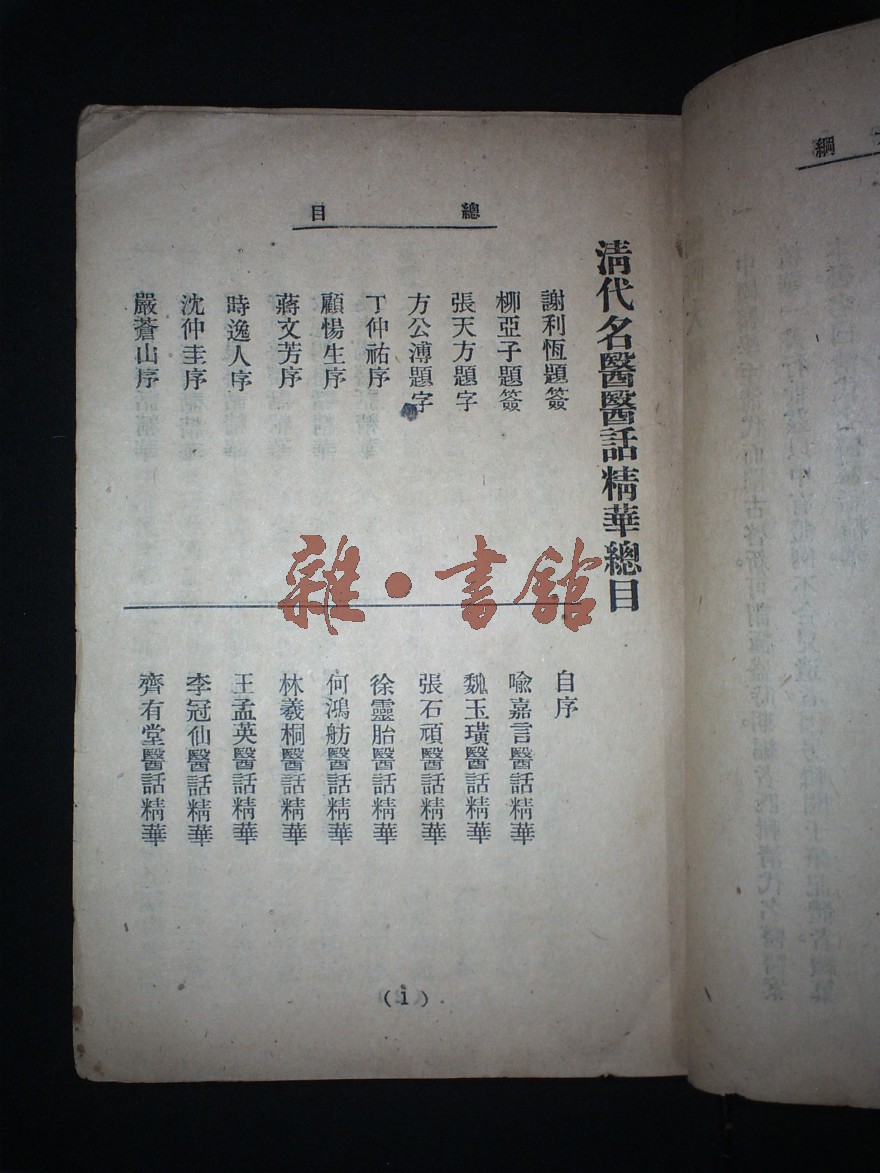 總目
清代名醫醫話精華總目
謝利恆題簽
柳亞子題簽
張天方題字
方公溥題字
丁仲祐序
顧惕生序
蔣文芳序
時逸人序
沈仲圭序
嚴蒼山序
自序
喻嘉言醫話精華
魏玉璜醫話精華
張石頑醫話精華
徐靈胎醫話精華
何鴻舫醫話精華
林羲桐醫話精華
王孟英醫話精華
李冠仙醫話精華
齊有堂醫話精華
(1)
雜·書館
綱